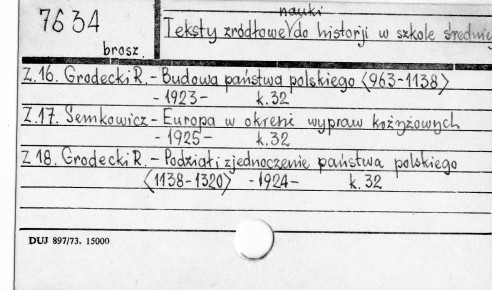 7634
brosz.
nauki
Teksty zródłowe do historji w szkole średniej
Z.16. Grodecki R. - Budowa państwa polskiego <963-1138>
- 1923 - k.32
Z.17. Semkowicz - Europa w okresie wypraw krzyżowych
- 1925 - k.32
Z 18. Grodecki R. - Podział i zjednoczenie państwa polskiego
<1138-1320> - 1924 - k.32
DUJ 897/73. 15000